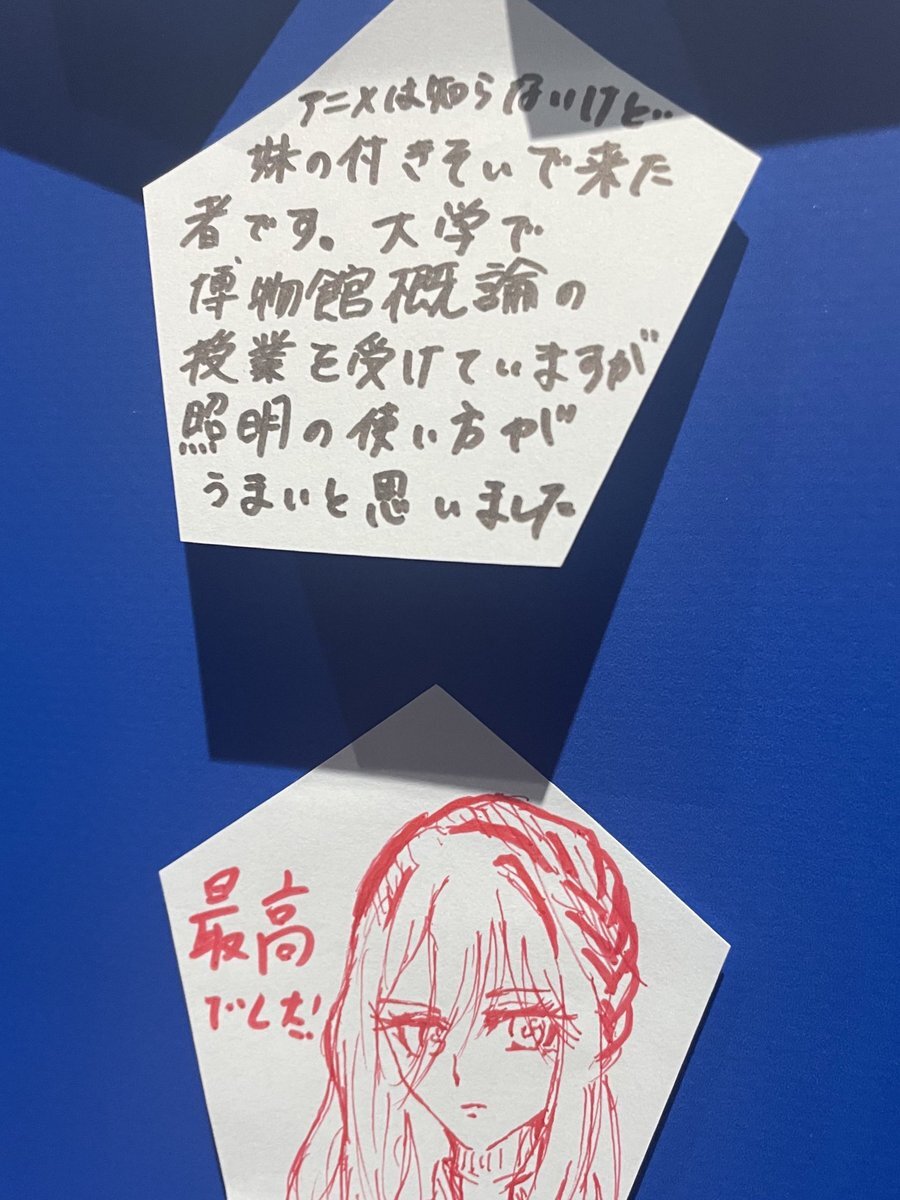 アニメは知らないけど…
妹の付きそいで来た
者です。大学で
博物館概論の
授業を受けていますが
照明の使い方が
うまいと思いました
最高
でした!